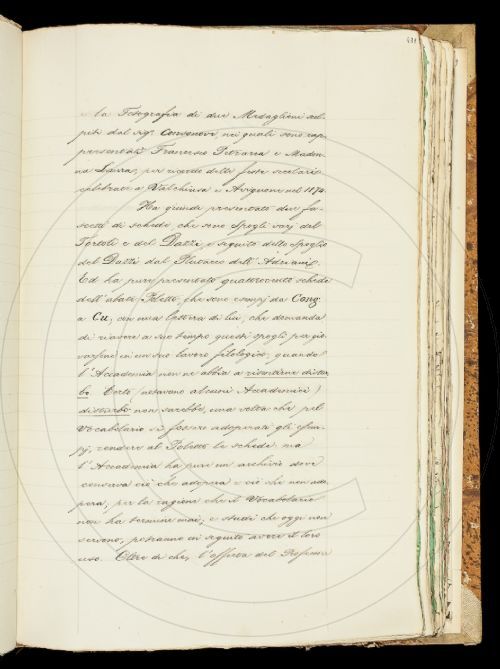 431
la Fotografia di due Medaglioni scol-
piti dal sig.r Consonove, nei quali sono rap-
presentati Francesco Petrarca e Madon-
na Laura, per ricordo delle feste secolari
celebrate a Valchiusa e Avignone nel 1874.
Ha quindi presentato due fa-
scetti di schede, che sono spogli varj del
Tortoli e del Dazzi, e seguito dello spoglio
del Dazzi dal Plutarco dell' Adriani.
Ed ha pure presentato quattrocento schede
dell' abate Poletto, che sono esempj da Cong
a Cu, con una lettera di lui, che domanda
di riavere a suo tempo questi spogli per gio-
varsene in un suo lavoro filologico, quando
l' Accademia non ne abbia a risentirne distur-
bo. Certo (notavano alcuni Accademici)
disturbo non sarebbe, una volta che pel
Vocabolario si fossero adoperati gli esem-
pj, rendere al Poletto le schede: ma
l' Accademia ha pure un archivio dove
conserva ciò che adopera e ciò che non ado-
pera, per la ragione che il Vocabolario
non ha termine mai, e studi che oggi non
servono, potranno in seguito avere il loro
uso. Oltre di che, l' offerta del Professore